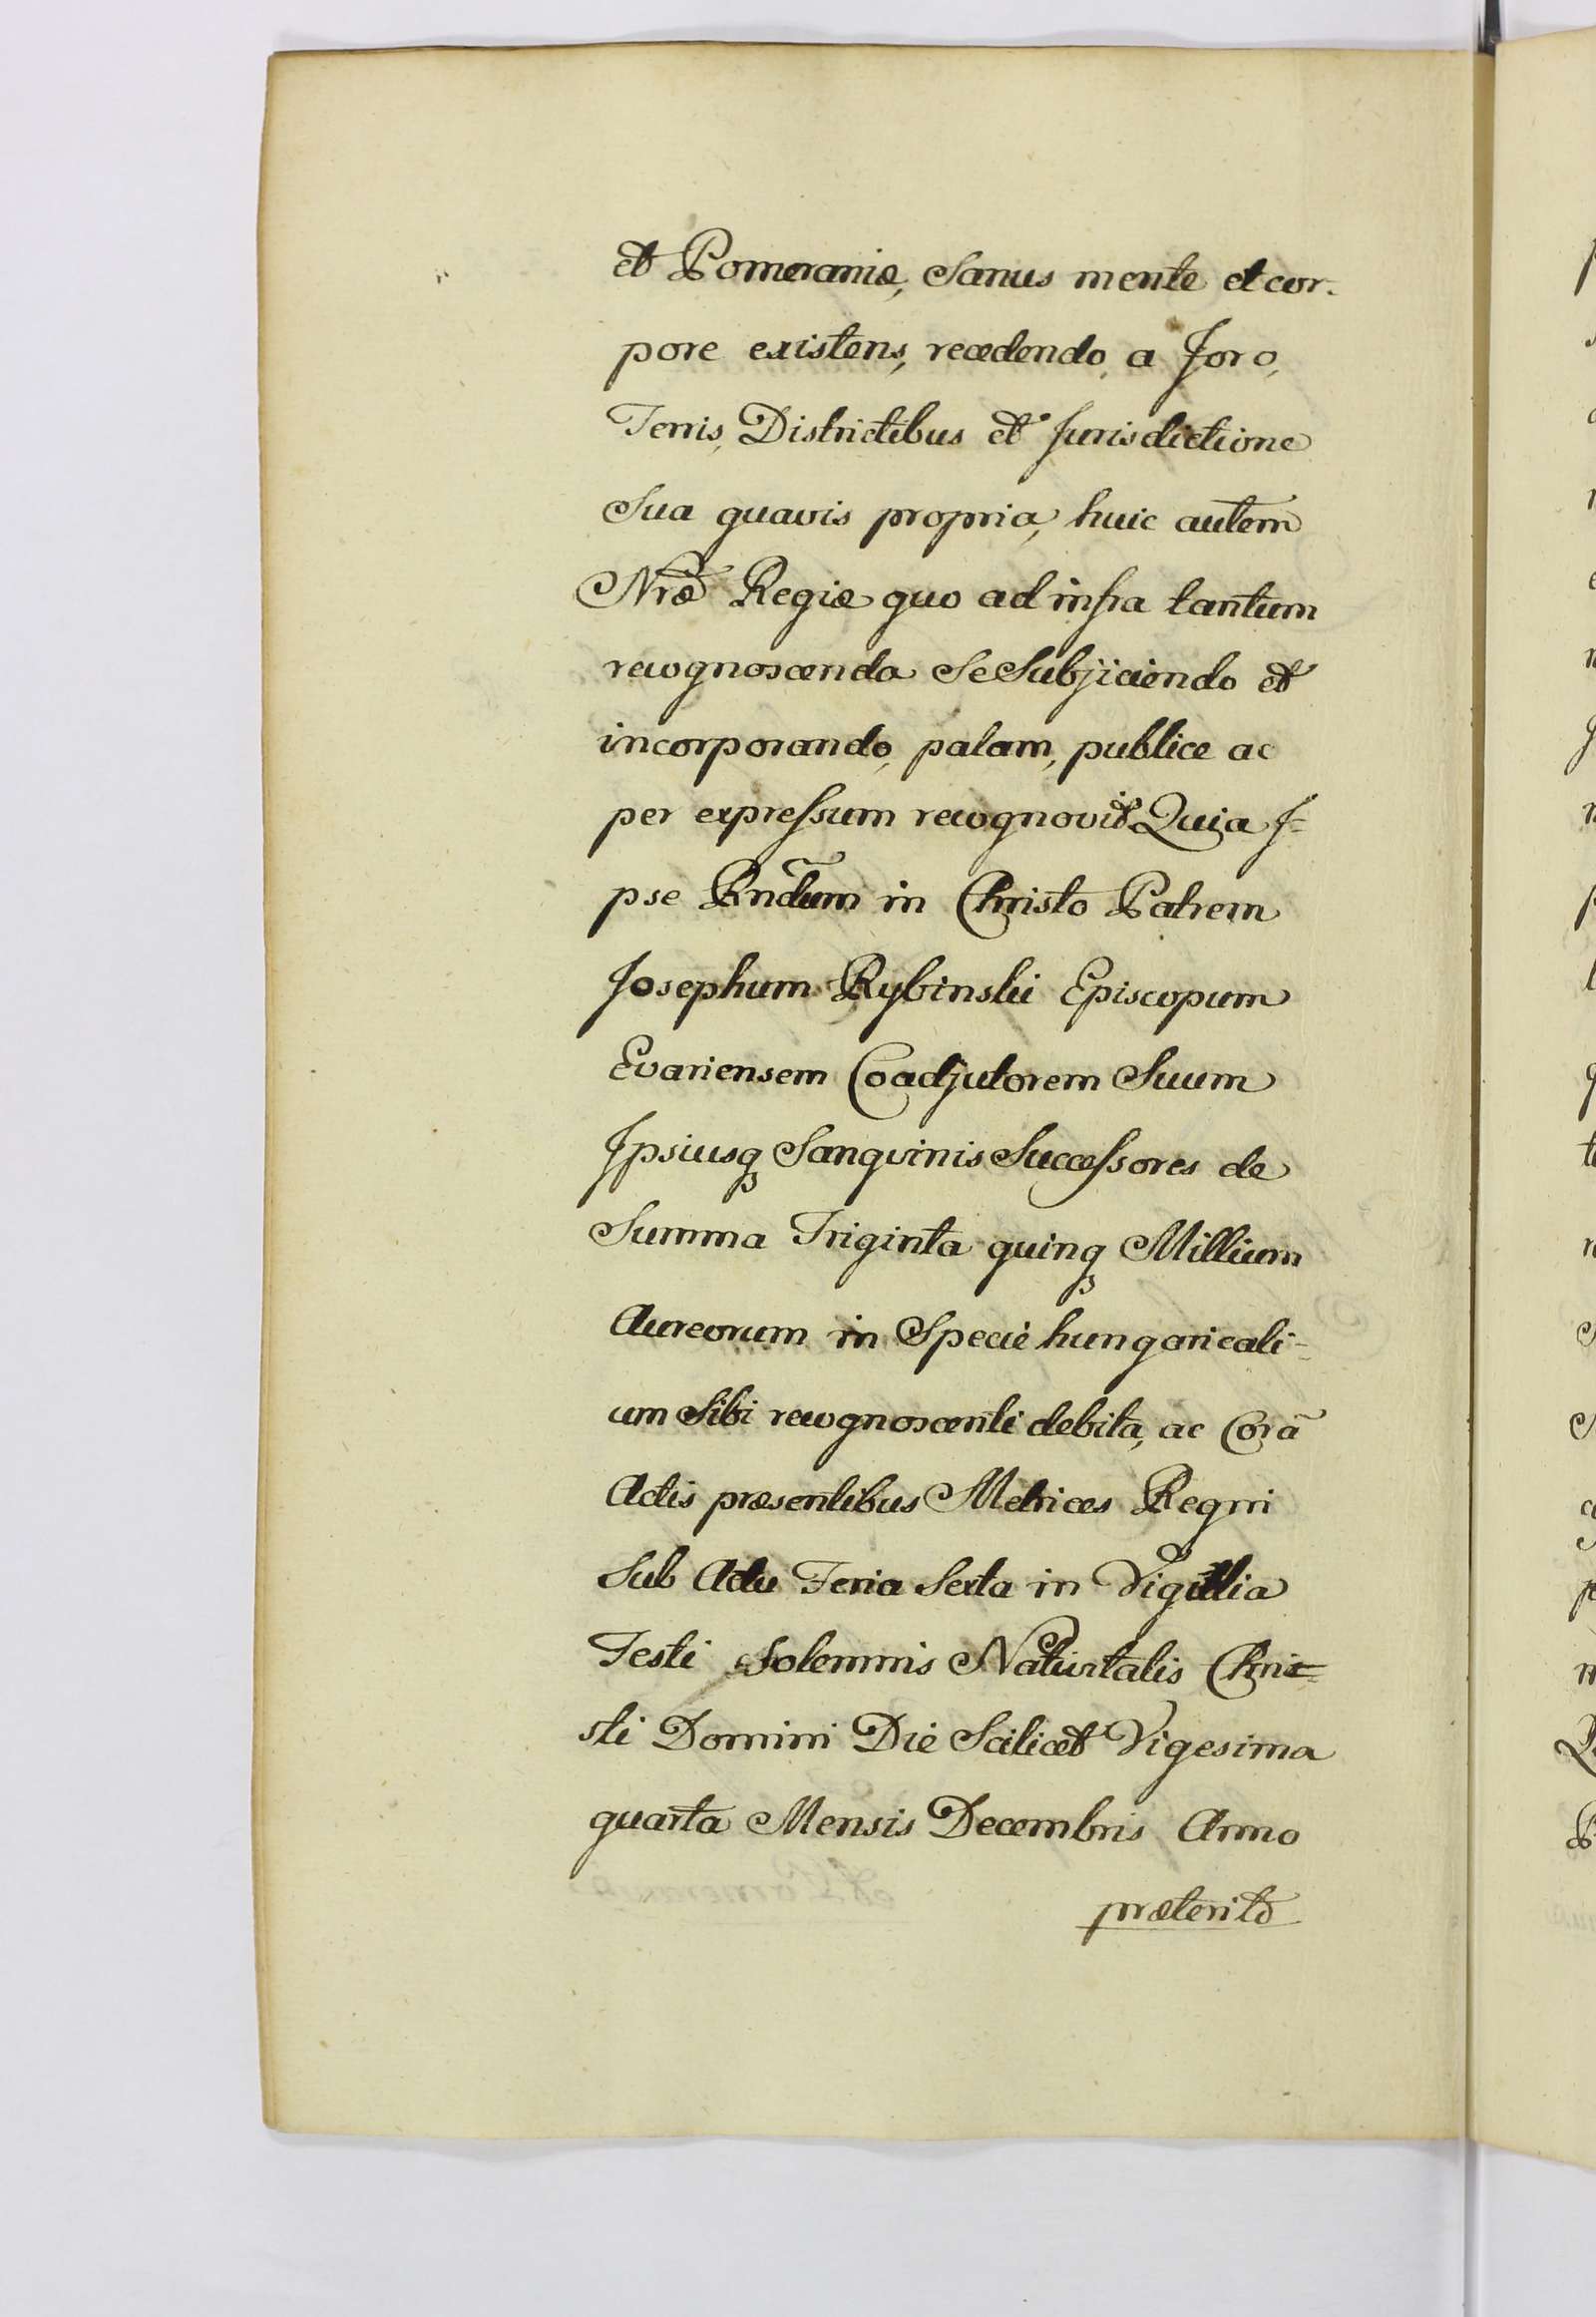 et Pomeraniæ, Sanus mente et cor-
pore existens, recedendo, a Foro,
Terris, Districtibus et Jurisdictione
Sua quavis propria, huic autem
Nræ Regiæ quo ad infra tantum
recognoscenda Se Subjiciendo et
incorporando, palam, publice ac
per expressum recognovit Quia I=
pse Rndum in Christo Patrem
Josephum Rybinski Episcopum
Evariensem Coadjutorem Suum
Ipsiusq Sangvinis Successores de
Summa Triginta quinq Millium
Aureorum in Specie hungaricali-
um Sibi recognoscenti debita, ac Corã
Actis præsentibus Metrices Regni
Sub Actu Feria Sexta in Vigillia
Festi Solemnis Nativitatis Chri=
sti Domini Die Scilicet Vigesima
quarta Mensis Decembris Anno
præterito